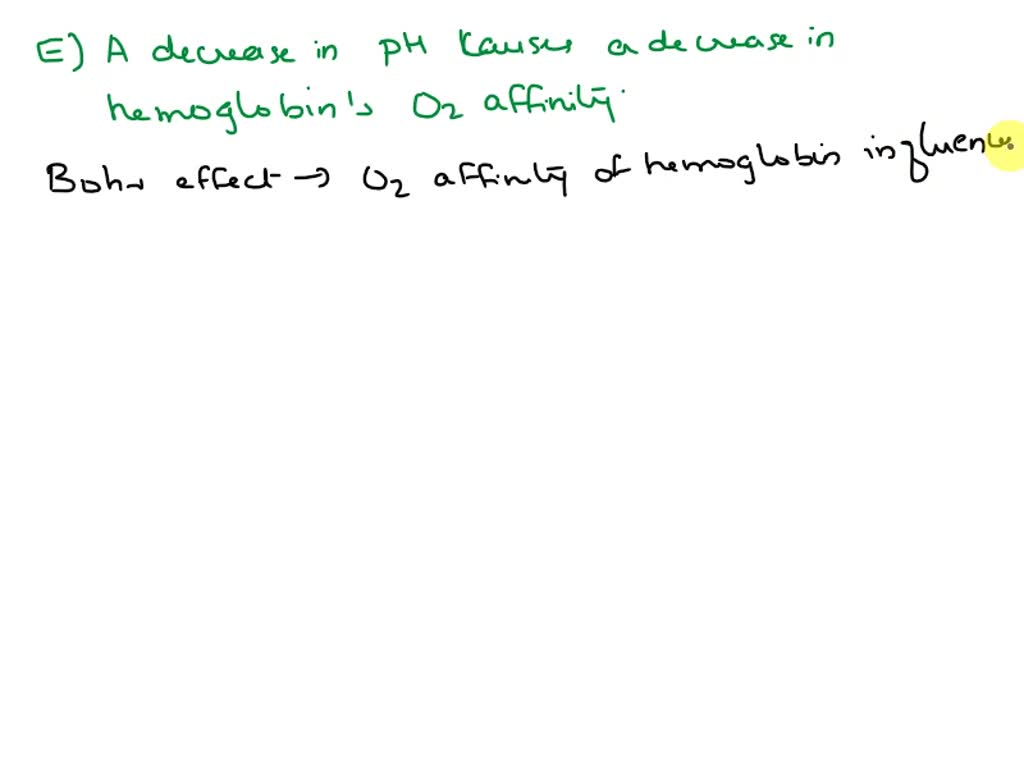 E) A decrease in pH causes a decrease in
hemoglobin's O2 affinity.
Bohr effect → O2 affinity of hemoglobin influence